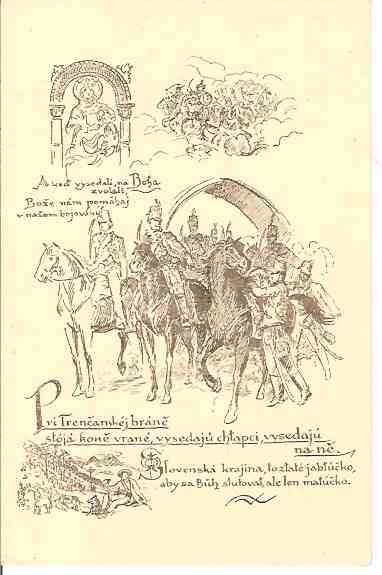 A keď vysedali, na Boha
zvolali:
Bože nám pomáhaj
v našom bojování
Pri Trenčanskéj bráně
stójá koně vrané, vysedajú chłapci, vysedajú
na ně.
Slovenská krajina, to zlaté jabłúčko,
aby sa Bůh slutoval, ale len maťúčko.